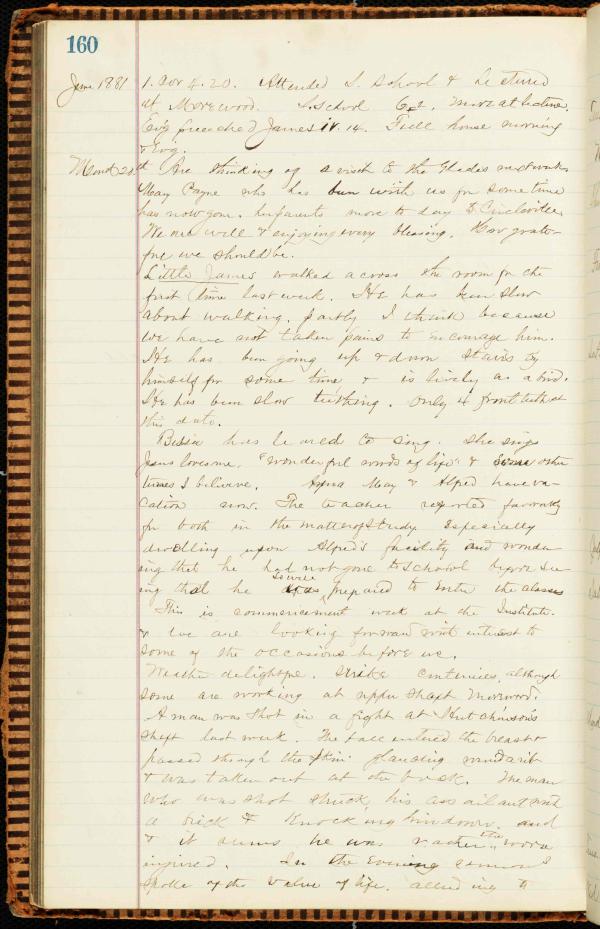 160
June 1881 1. Cor 4.20. Attended S. School & Lectured
at Morewood. S. School 62. more at lecture.
Ev'g preached James IV. 14. Full house morning
& Ev'g.
Mond 20th Are thinking of a visit to the Glades next week
May Payne who has been with us for some time
has now gone. her parents move to day to Circleville.
We are well & enjoying every blessing. How grate-
ful we should be.
Little James walked across the room for the
first time last week. He has been slow
about walking. partly I think because
we have not taken pains to encourage him.
He has been going up & down stairs by
himself for some time & is lively as a bird.
He has been slow teething. Only 4 front teeth at
this date.
Bessie has learned to sing. She sings
Jesus loves me. "Wonderful words of life" & some other
tunes I believe. Anna May & Alfred have va-
cation now. The teacher reported favorably
for both in the matter of study. Especially
dwelling upon Alfred's facility and wonder-
ing that he had not gone to school before see-
ing that he was so well prepared to enter the classes
This is commencement week at the Institute.
& we are looking forward with interest to
some of the occasions before us.
Weather delightful. Strike continues, although
some are working at upper shaft Morewood.
A man was shot in a fight at Hutchinson's
shaft last week. The ball entered the breast &
passed through the skin glancing round a rib
& was taken out at the back. The man
who was shot struck his assailant with
a brick & knocking him down. and
& it seems he was rather the worse
injured. In the evening sermon I
spoke of the value of life. alluding to